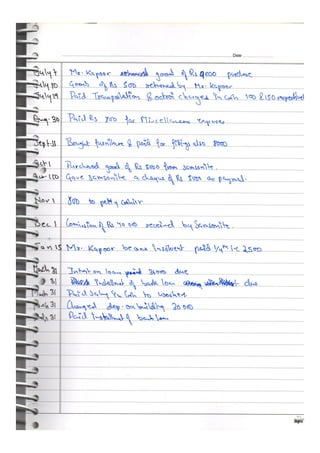 Date
July 1 Mr. Kapoor good of Rs 9000 purchase
July 10 Goods of Rs 500 returned by Mr. Kapoor
July 19 Paid Transpolation & octroi charged in Cash 100 & 150 respectively
Aug. 30 Paid Rs 800 for Miscellaneous expenses
Sept. 31 Bought furniture & paid for fittigs also 8000
Oct 1 Purchased good of Rs 5000 from Samsonite.
Gave Samsonite a cheque of Rs as payment.
Nov 1 800 to petty Cashier
Dec 1 Comission of Rs received by Samsonite.
Jan 15 Mr. Kapoor became Insolvent paid 1/4th i.e 2500
March 31 Intrest on loan 3000 due
31 Indelment of bank loan due
March 31 Paid Salry in Cash to workers
March 31 Charged dep. on building 20000
31 Paid Instellment of bank loan